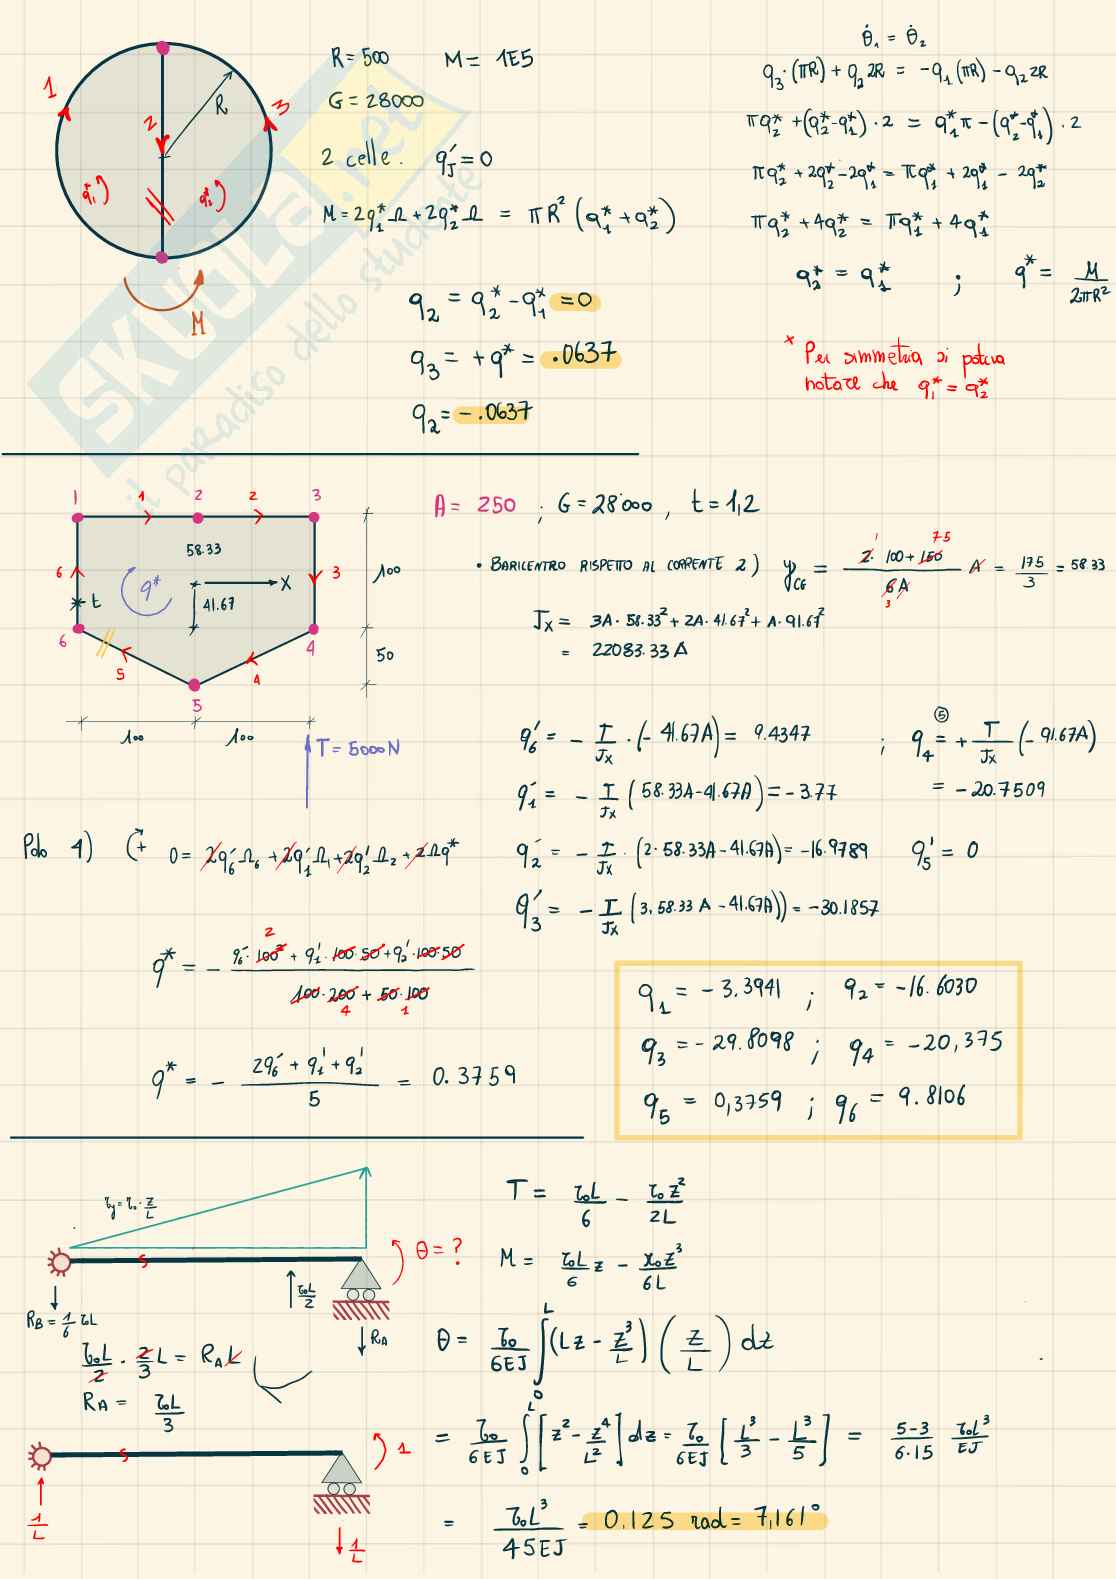 R = 500   M = 1E5
G = 28000
2 celle.   q'_J = 0
M = 2q_1^* Ω + 2q_2^* Ω = πR² (q_1^* + q_2^*)
q_2 = q_2^* - q_1^* = 0
q_3 = +q^* = .0637
q_2 = -.0637
1
2
3
R
q_1^*
q_2^*
M
θ̇_1 = θ̇_2
q_3·(πR) + q_2 2R = -q_1 (πR) - q_2 2R
πq_2^* + (q_2^* - q_1^*)·2 = q_1^* π - (q_2^* - q_1^*)·2
πq_2^* + 2q_2^* - 2q_1^* = πq_1^* + 2q_1^* - 2q_2^*
πq_2^* + 4q_2^* = πq_1^* + 4q_1^*
q_2^* = q_1^*   ;   q^* = M / 2πR²
* Per simmetria si poteva
notare che q_1^* = q_2^*
SKUOLA.net
il paradiso dello studente
1 1 2 2 3
58.33
6 q^* X 3 100
t 41.67
6 4
5 4 50
5
100 100
T = 5000N
A = 250 ; G = 28'000 , t = 1,2
• BARICENTRO RISPETTO AL CORRENTE 2) y_CG = (2·100 + 150) / 6A A = 175 / 3 = 58.33
1 75
3
J_X = 3A·58.33² + 2A·41.67² + A·91.67²
= 22083.33 A
q_6' = - T/J_X · (-41.67A) = 9.4347 ; q_4^⑤ = + T/J_X (-91.67A)
q_1' = - T/J_X (58.33A - 41.67A) = -3.77   = -20.7509
q_2' = - T/J_X · (2·58.33A - 41.67A) = -16.9789   q_5' = 0
q_3' = - T/J_X (3.58.33 A - 41.67A)) = -30.1857
Polo 4) (+ 0 = 2q_6' Ω_6 + 2q_1' Ω_1 + 2q_2' Ω_2 + 2Ωq^*
q^* = - (q_6'·100² + q_1'·100·50 + q_2'·100·50) / (100·200 + 50·100)
2
4 1
q^* = - (2q_6' + q_1' + q_2') / 5 = 0.3759
q_1 = -3.3941 ; q_2 = -16.6030
q_3 = -29.8098 ; q_4 = -20,375
q_5 = 0,3759 ; q_6 = 9.8106
τ_y = τ_0·z/L
s
θ = ?
τ_0L/2
R_B = 1/6 τL
R_A
τ_0L/2 · 2/3 L = R_A L
R_A = τ_0L/3
s
1
1/L
1/L
T = τ_0L/6 - τ_0z²/2L
M = τ_0L/6 z - τ_0z³/6L
θ = τ_0/6EJ ∫_0^L (Lz - z³/L) (z/L) dz
= τ_0/6EJ ∫_0^L [z² - z⁴/L²] dz = τ_0/6EJ [L³/3 - L³/5] = 5-3/6·15 τ_0L³/EJ
= τ_0L³/45EJ = 0.125 rad = 7,161°